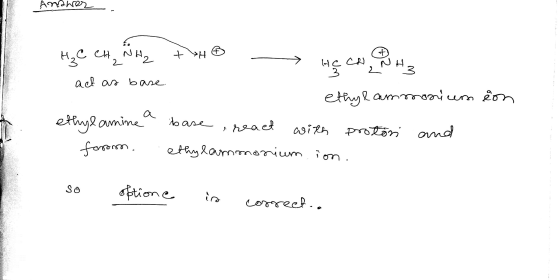 Answer
H₃C CH₂ N̈H₂ + H⊕ ⟶ H₃C CH₂ N⊕H₃
act as base
ethylammonium ion
ethylamine a base, react with proton and
form. ethylammonium ion.
so option c is correct.